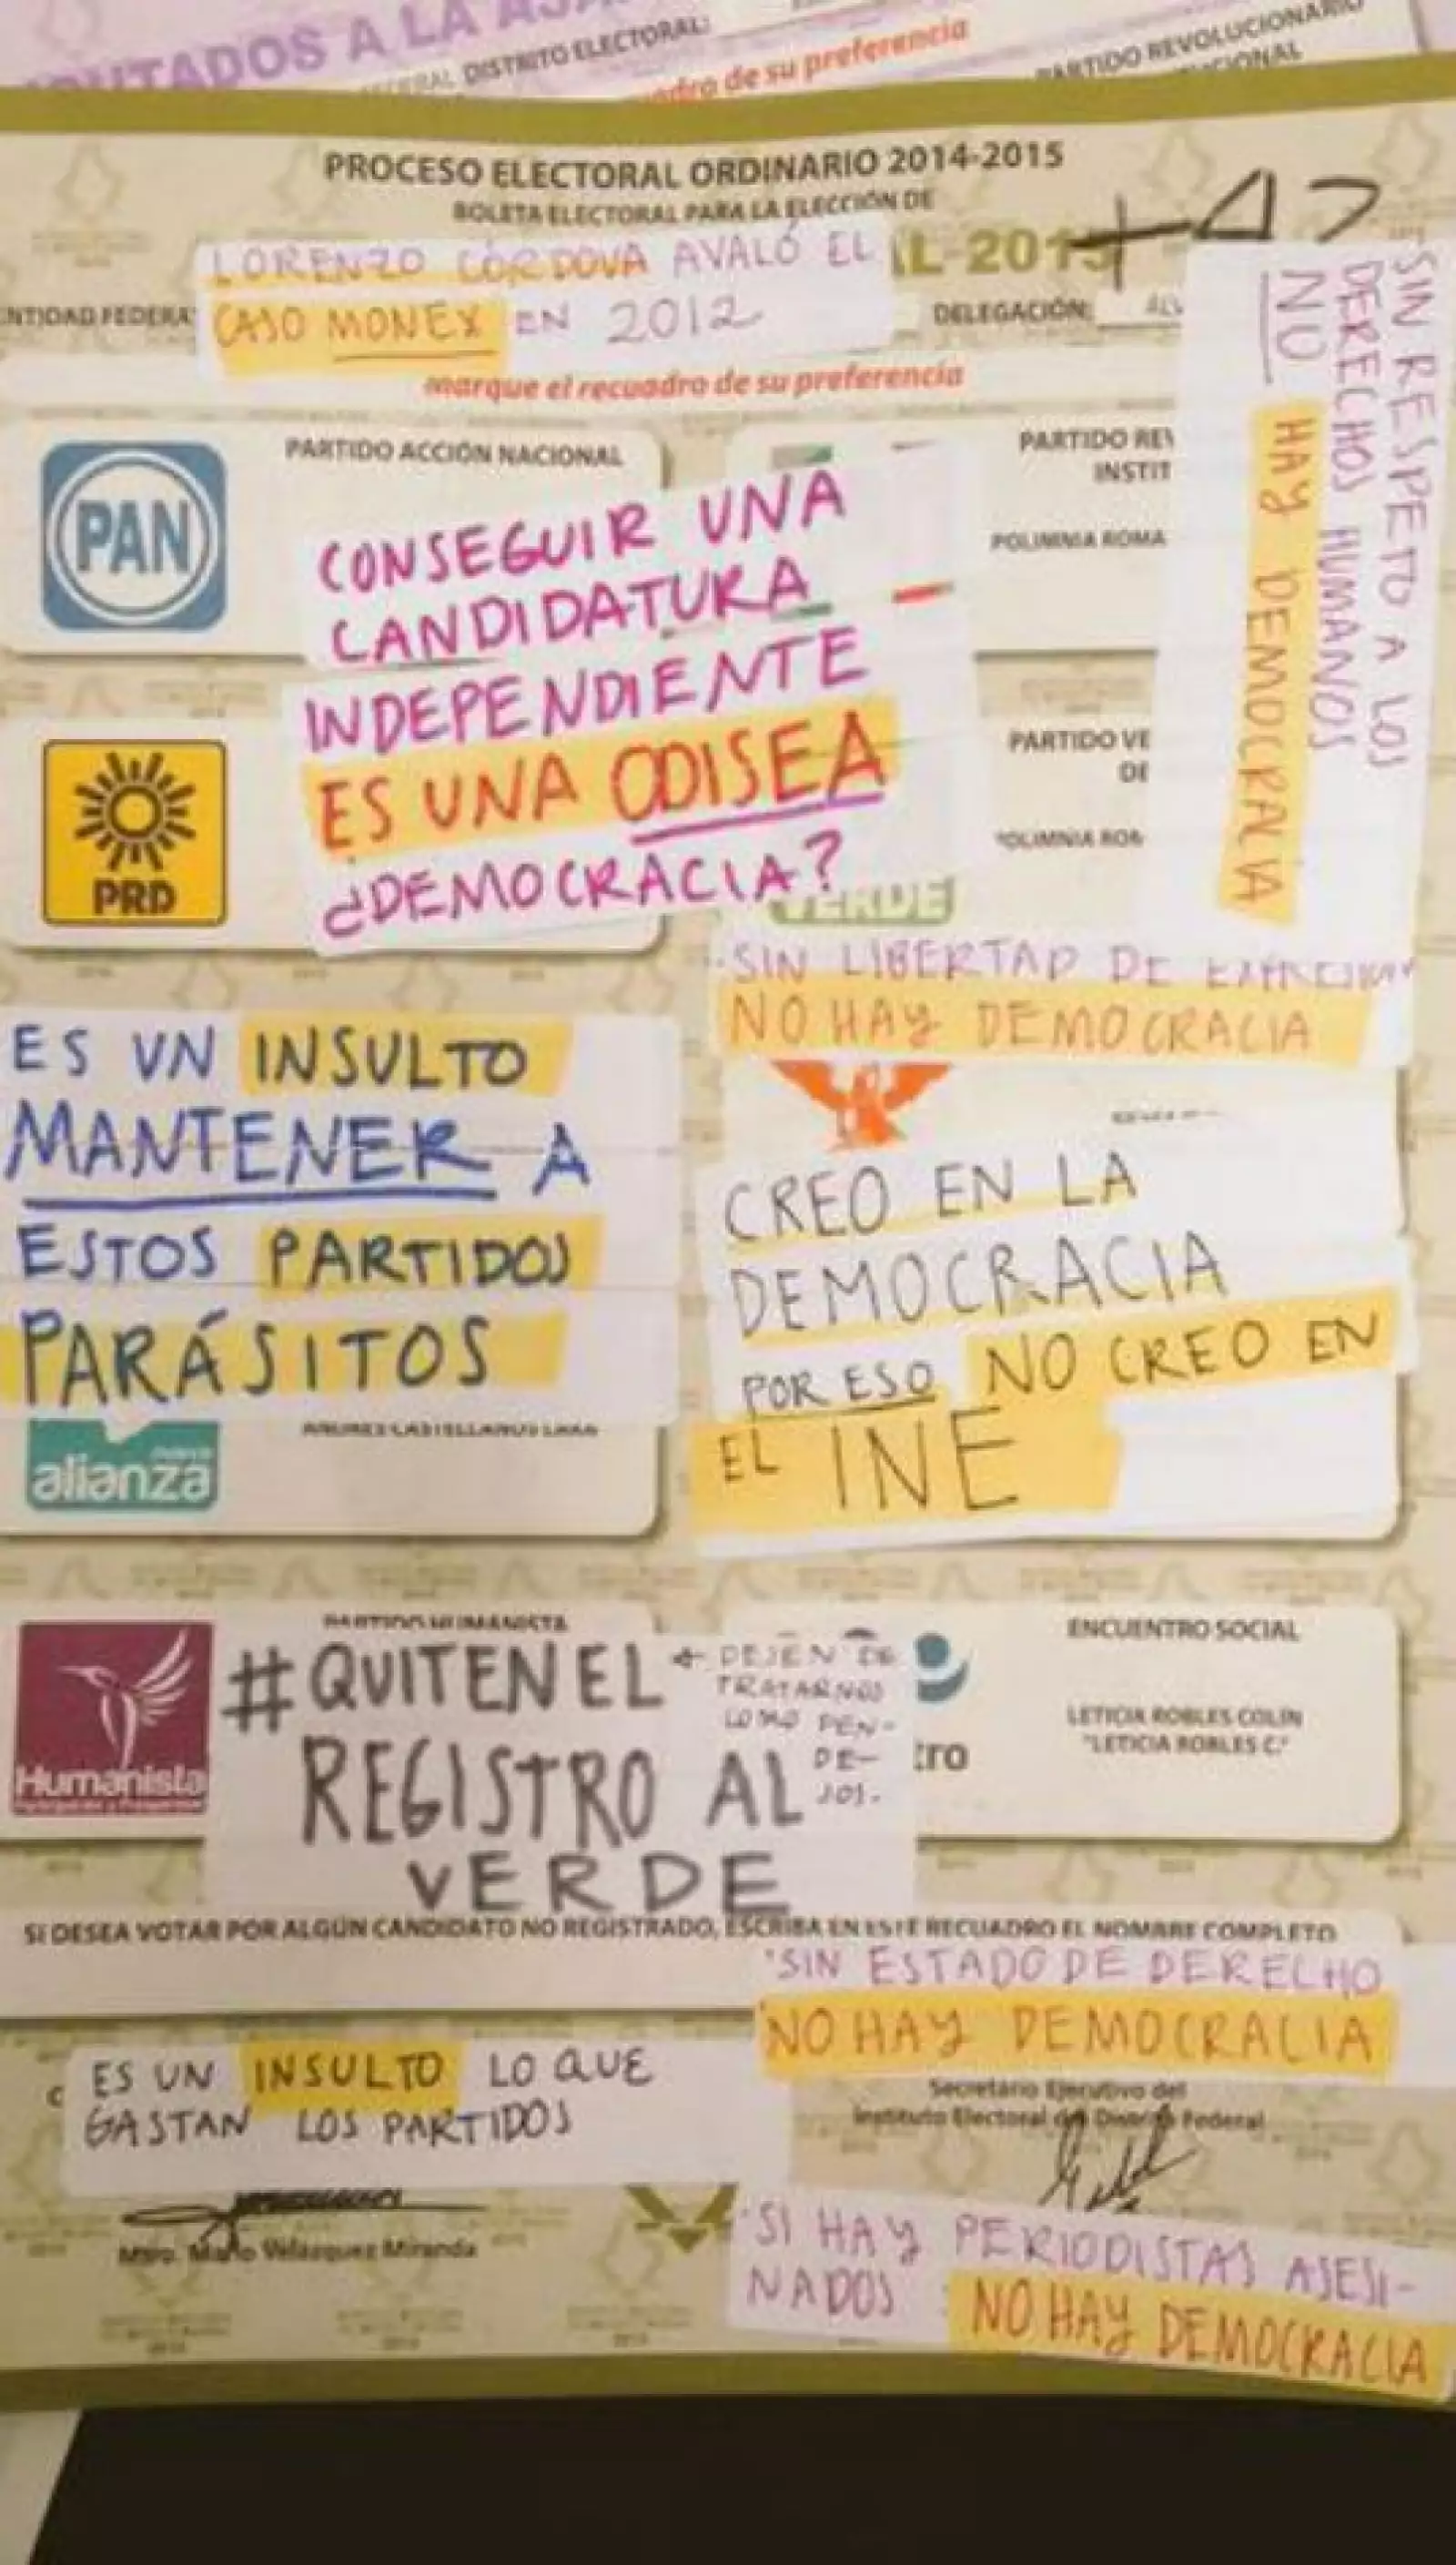 DIPUTADOS A LA
DISTRITO ELECTORAL:
de su preferencia
PARTIDO REVOLUCIONARIO
PROCESO ELECTORAL ORDINARIO 2014-2015
BOLETA ELECTORAL PARA LA ELECCIÓN DE
LORENZO CÓRDOVA AVALÓ EL
CASO MONEX EN 2012
DELEGACIÓN:
marque el recuadro de su preferencia
SIN RESPETO A LOS
DERECHOS HUMANOS
NO HAY DEMOCRACIA
PAN
PARTIDO ACCIÓN NACIONAL
PARTIDO REV
INSTIT
POLIMNIA ROMA
CONSEGUIR UNA
CANDIDATURA
INDEPENDIENTE
ES UNA ODISEA
¿DEMOCRACIA?
PRD
PARTIDO VE
DE
VERDE
SIN LIBERTAD DE
NO HAY DEMOCRACIA
ES UN INSULTO
MANTENER A
ESTOS PARTIDOS
PARÁSITOS
CREO EN LA
DEMOCRACIA
POR ESO NO CREO EN
EL INE
nueva
alianza
ANDRES CASTELLANOS LARA
Humanista
PARTIDO HUMANISTA
#QUITENEL
REGISTRO AL
VERDE
← DEJEN DE
TRATARNOS
COMO PEN-
DE-
JOS.
tro
ENCUENTRO SOCIAL
LETICIA ROBLES COLÍN
"LETICIA ROBLES C."
SI DESEA VOTAR POR ALGÚN CANDIDATO NO REGISTRADO, ESCRIBA EN ESTE RECUADRO EL NOMBRE COMPLETO
SIN ESTADO DE DERECHO
NO HAY DEMOCRACIA
ES UN INSULTO LO QUE
GASTAN LOS PARTIDOS
Secretario Ejecutivo del
Instituto Electoral del Distrito Federal
Mtro. Mario Velázquez Miranda
SI HAY PERIODISTAS ASESI-
NADOS NO HAY DEMOCRACIA